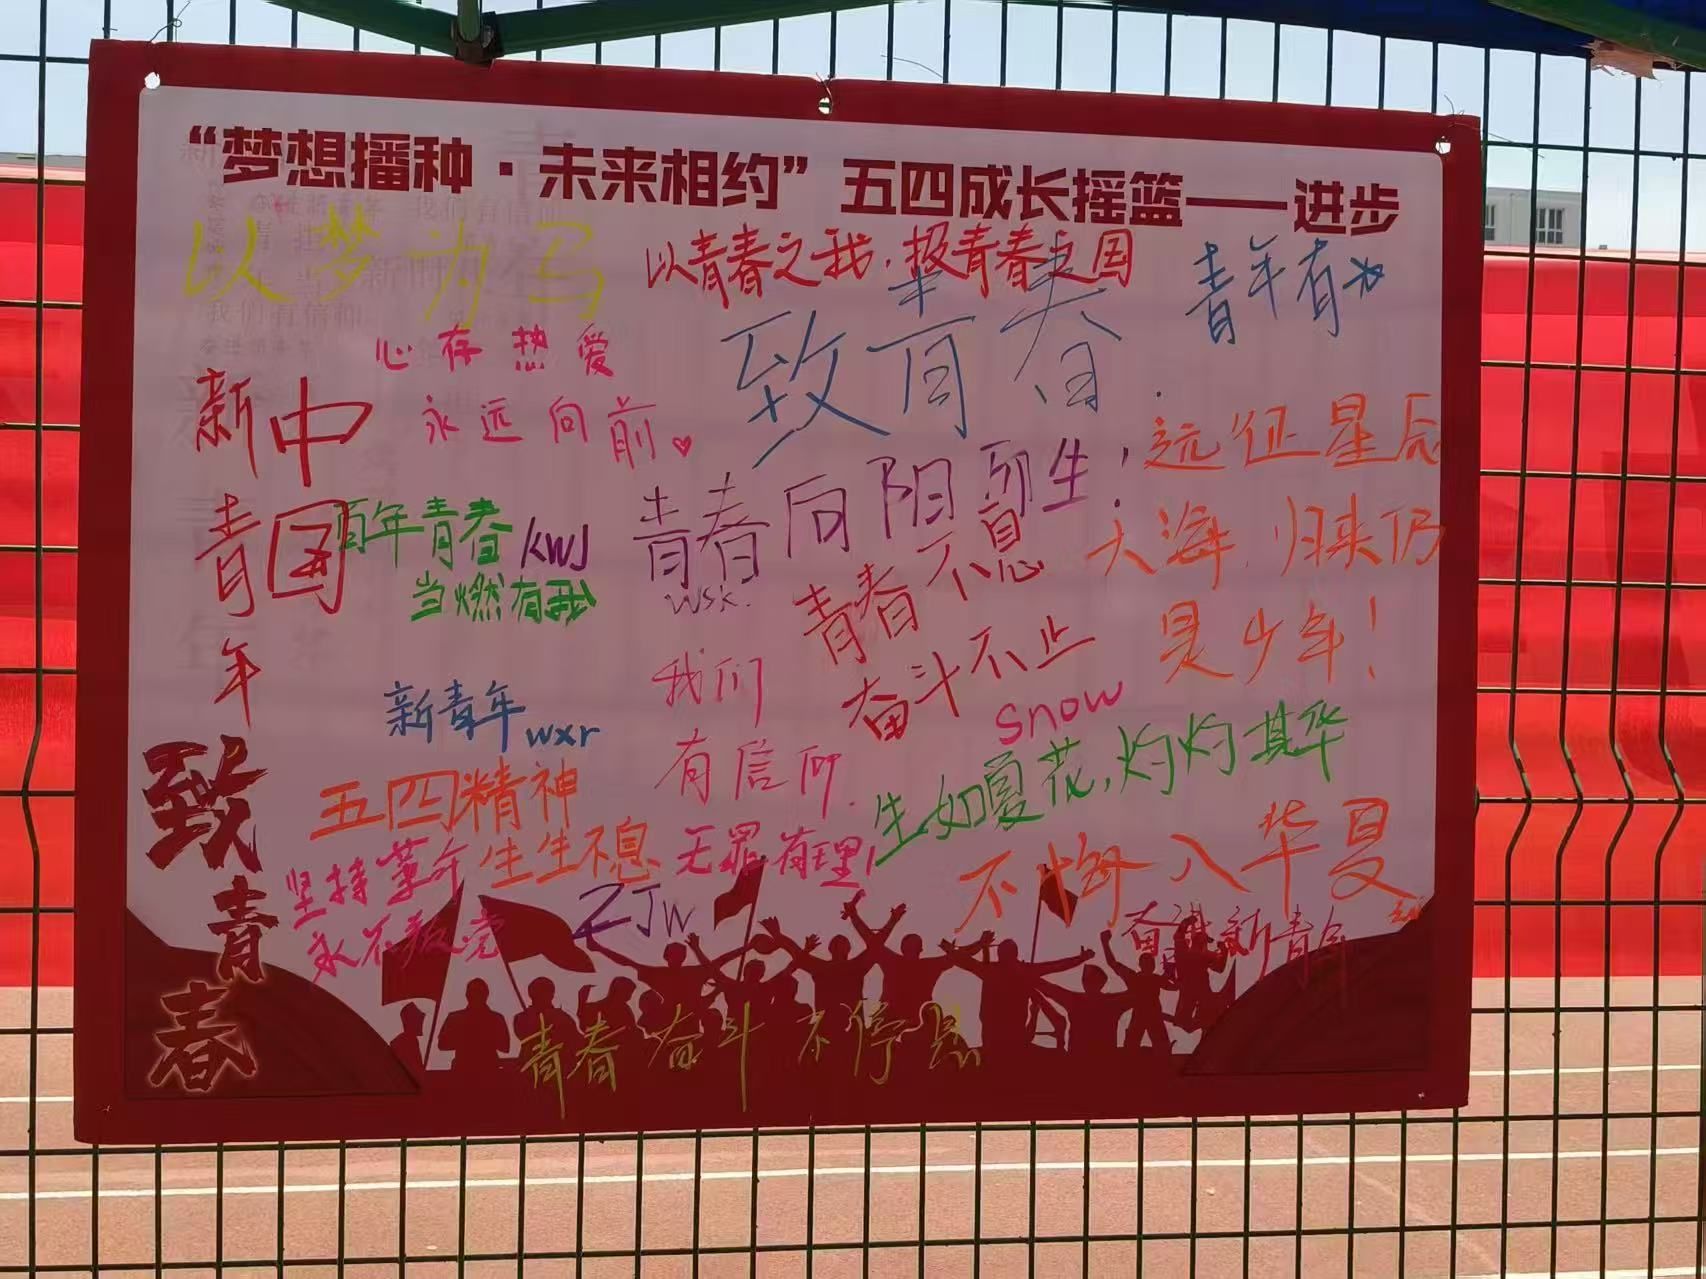 “梦想播种·未来相约”五四成长摇篮——进步
以梦为马
以青春之我,报青春之国
青年有为
心存热爱
永远向前
致青春
新青年
中国
百年青春
当燃有我
kwJ
青春向阳而生!
wsk.
远征星辰
大海,归来仍
是少年!
青春不息
奋斗不止
snow
新青年 wxr
我们
有信仰
五四精神
生生不息
坚持革命
永不叛党
无罪有理!
生如夏花,灼灼其华
不悔入华夏
ZJw
奋进新青年
青春奋斗不停息
致青春